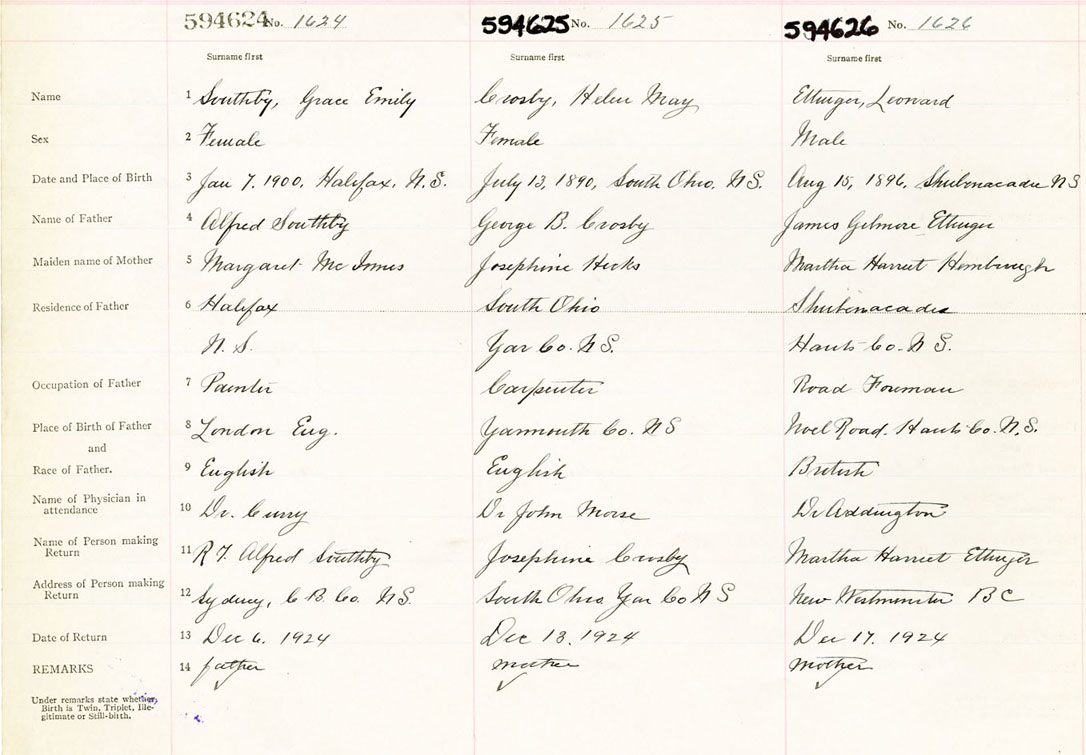 594624 No. 1624 594625 No. 1625 594626 No. 1626
Surname first Surname first Surname first
Name 1 Southby, Grace Emily Crosby, Helen May Ettinger, Leonard
Sex 2 Female Female Male
Date and Place of Birth 3 Jan 7. 1900, Halifax, N.S. July 13, 1890, South Ohio, N.S. Aug 15, 1896, Shubenacadie N S
Name of Father 4 Alfred Southby George B. Crosby James Gilmore Ettinger
Maiden name of Mother 5 Margaret Mc Innis Josephine Hicks Martha Harriet
Residence of Father 6 Halifax South Ohio Shubenacadie
N. S. Yar Co. N S. Hants Co. N S.
Occupation of Father 7 Painter Carpenter Road Foreman
Place of Birth of Father 8 London Eng. Yarmouth Co. N S Noel Road. Hants Co. N.S.
and
Race of Father. 9 English English British
Name of Physician in
attendance 10 Dr. Curry Dr John Morse Dr Addington
Name of Person making
Return 11 Alfred Southby Josephine Crosby Martha Harriet Ettinger
Address of Person making
Return 12 Sydney, C B. Co. N S. South Ohio Yar Co N S New Westminster B C
Date of Return 13 Dec 6. 1924 Dec 13. 1924 Dec 17. 1924
REMARKS 14 father mother mother
Under remarks state whether
Birth is Twin, Triplet, Ille-
gitimate or Still-birth.